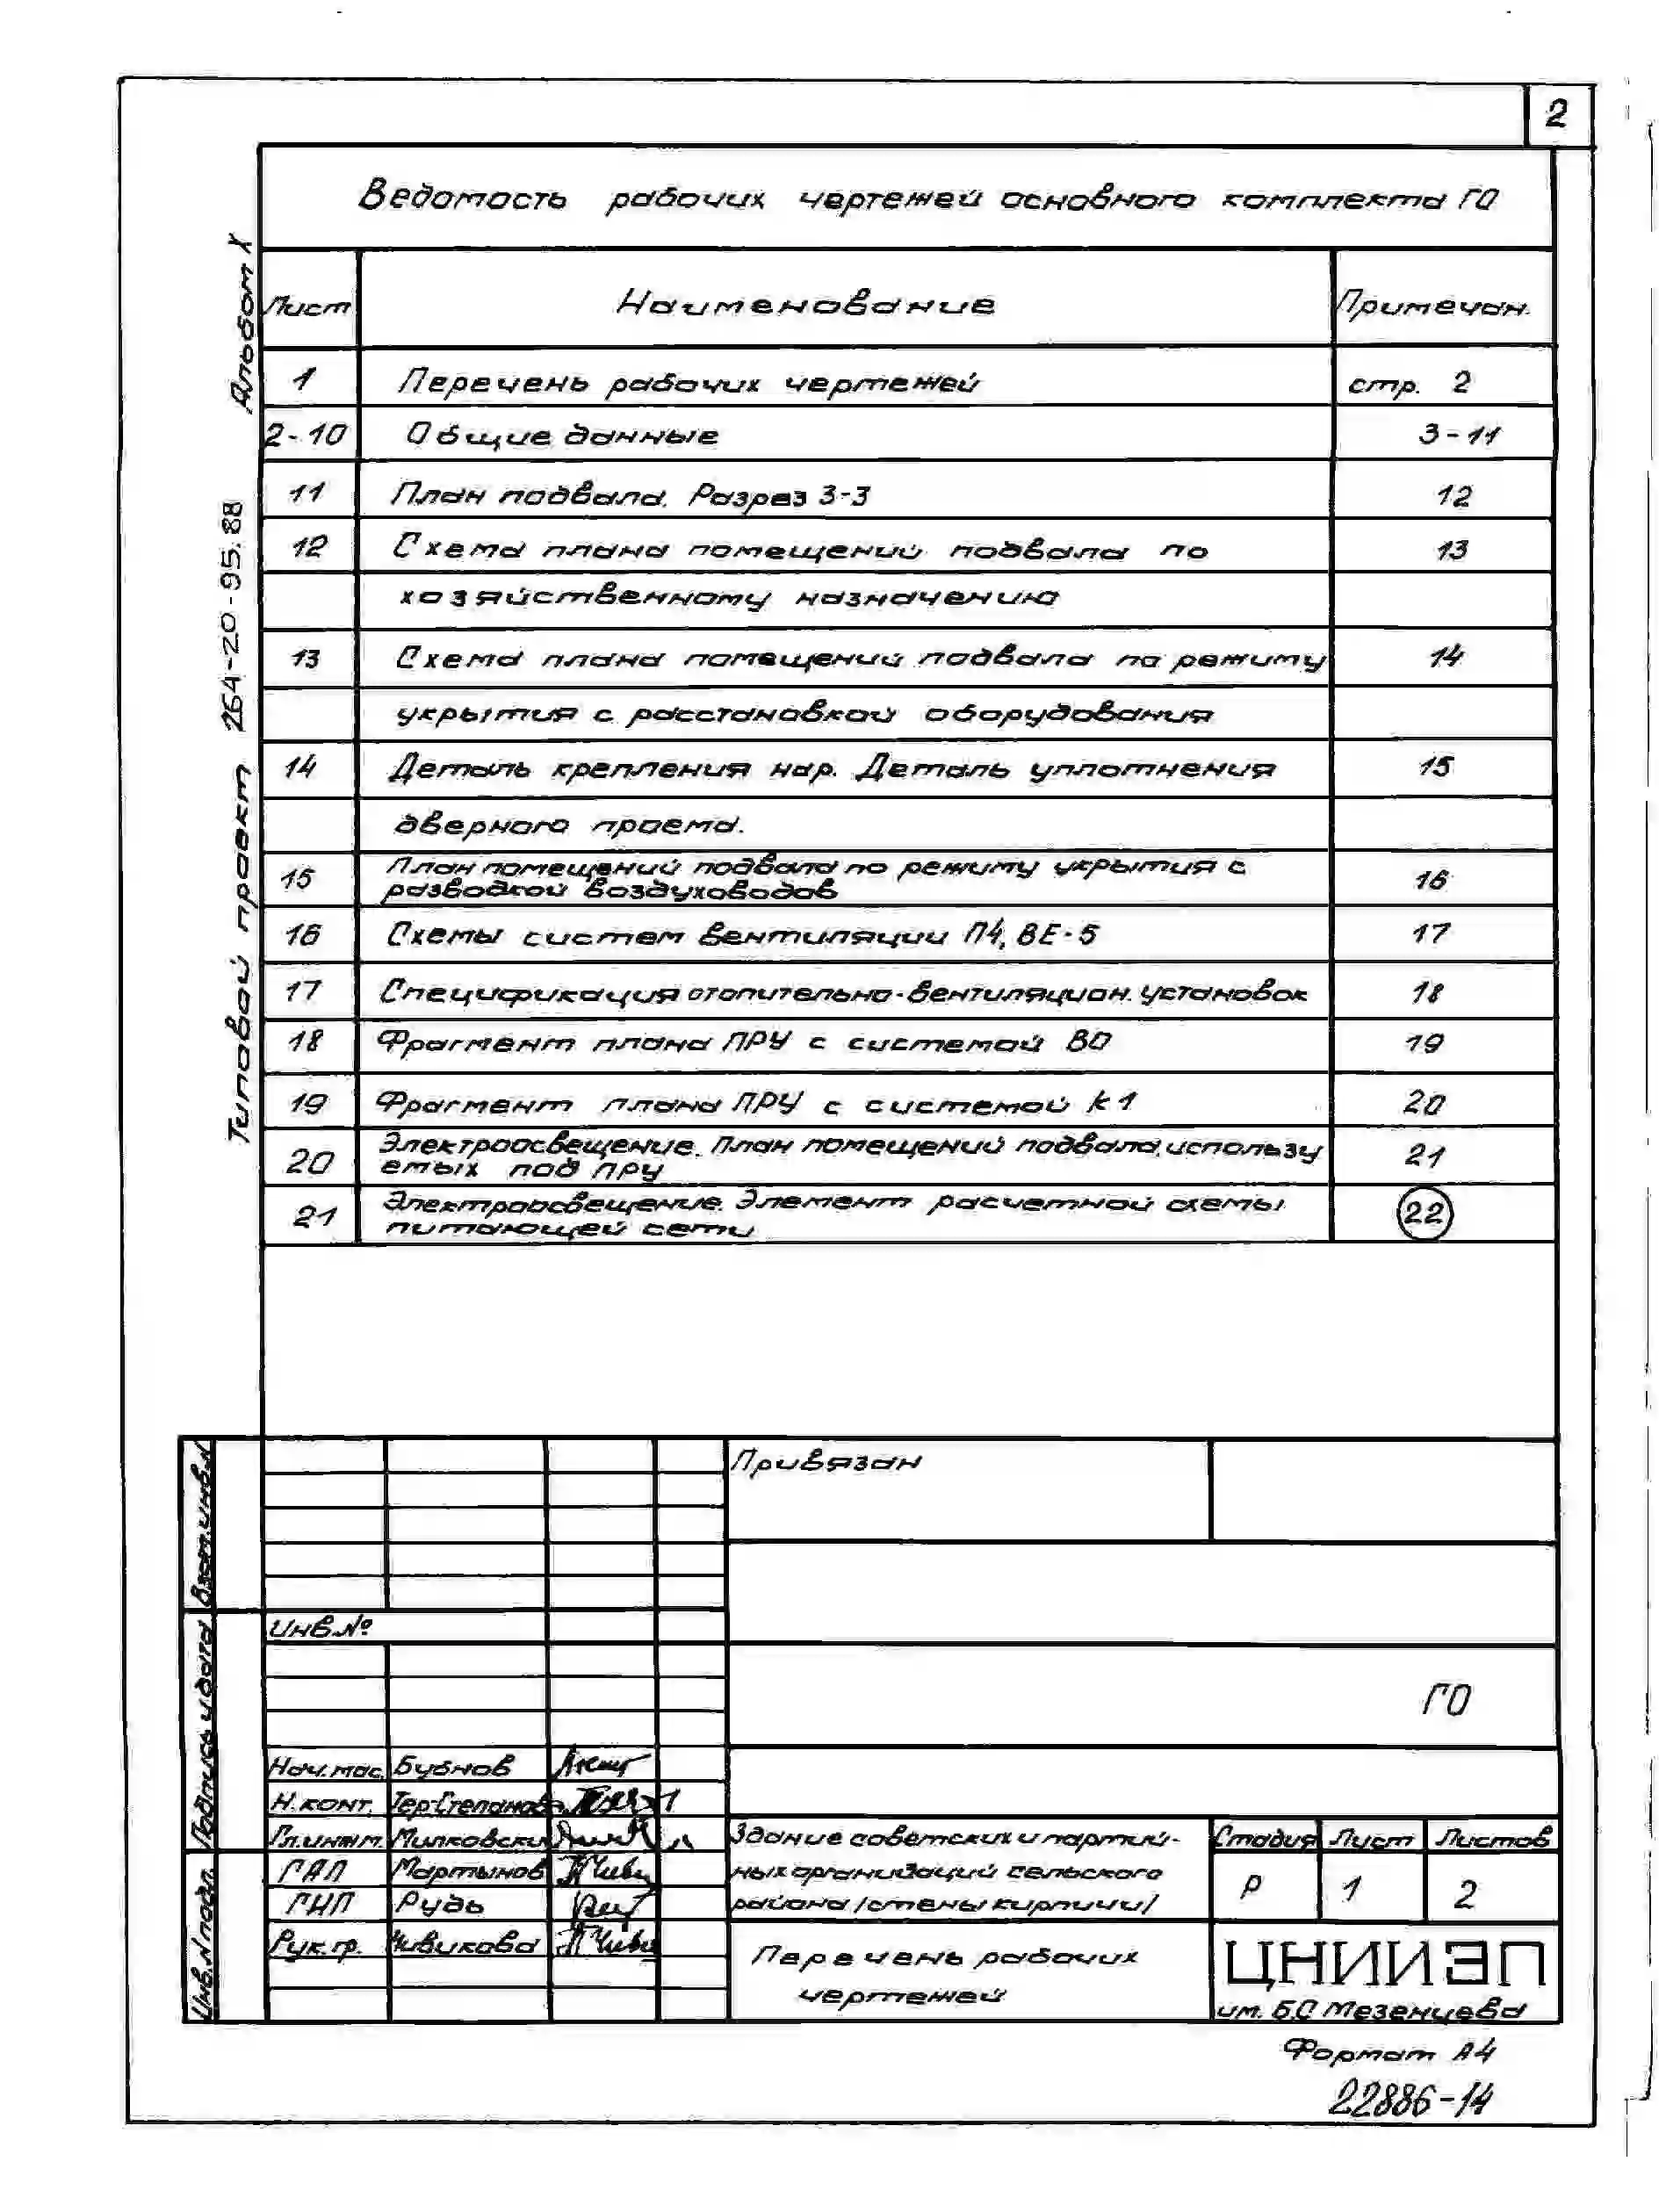 2
Ведомость рабочих чертежей основного комплекта ГО
Лист Наименование Примечан.
1 Перечень рабочих чертежей стр. 2
2-10 Общие данные 3-11
11 План подвала. Разрез 3-3 12
12 Схема плана помещений подвала по 13
хозяйственному назначению
13 Схема плана помещений подвала по режиму 14
укрытия с расстановкой оборудования
14 Деталь крепления нар. Деталь уплотнения 15
дверного проема.
15 План помещений подвала по режиму укрытия с 16
разводкой воздуховодов
16 Схемы систем вентиляции П4, ВЕ-5 17
17 Спецификация отопительно-вентиляцион. установок 18
18 Фрагмент плана ПРУ с системой В0 19
19 Фрагмент плана ПРУ с системой К1 20
20 Электроосвещение. План помещений подвала, использу 21
емых под ПРУ
21 Электроосвещение. Элемент расчетной схемы 22
питающей сети
Альбом X
Типовой проект 264-20-95.88
Привязан
Инв.№
ГО
Нач.мас. Бубнов
Н.конт. Тер-Степанов
Гл.инж.м. Милковски
ГАП Мартынов
ГИП Рудь
Рук.гр. Чивикова
Здание советских и партий-
ных организаций сельского
района /стены кирпичи/
Стадия Лист Листов
Р 1 2
Перечень рабочих
чертежей
ЦНИИЭП
им. Б.С Мезенцева
Взам.инв.№
Подпись и дата
Инв.№подл.
Формат А4
22886-14